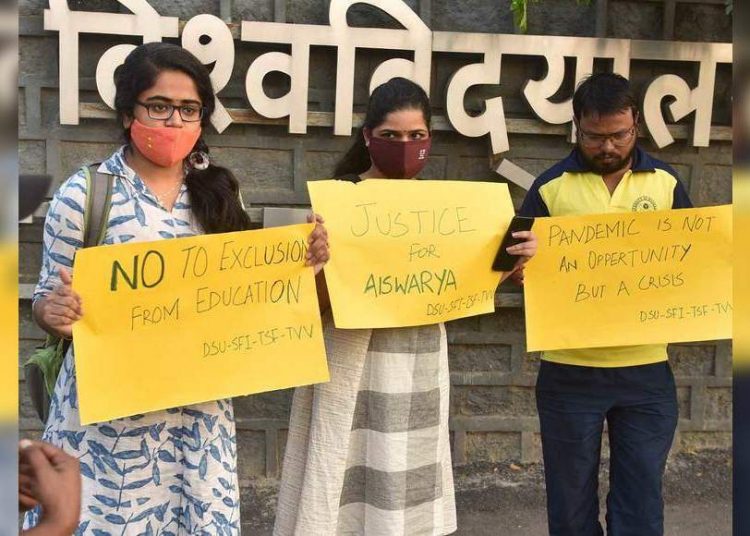 विश्वविद्याल
NO TO EXCLUSION
FROM EDUCATION
DSU-SFI-TSF-TVV
JUSTICE
FOR
AISWARYA
DSU-SFI-TSF-TVV
PANDEMIC IS NOT
AN OPPERTUNITY
BUT A CRISIS
DSU-SFI-TSF-TVV